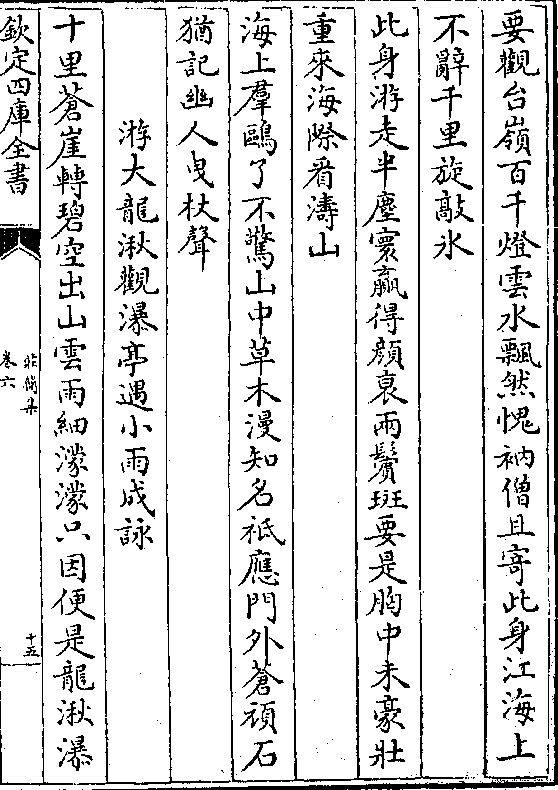 要觀台嶺百千燈雲水飄然愧衲僧且寄此身江海上
不辭千里旋敲氷
此身游走半塵寰贏得顔衰兩鬢斑要是胸中未豪壯
重來海際看濤山
海上羣鷗了不驚山中草木漫知名祗應門外蒼頑石
猶記幽人曳杖聲
游大龍湫觀瀑亭遇小雨成詠
十里蒼崖轉碧空出山雲雨細濛濛只因便是龍湫瀑
欽定四庫全書
莊簡集
卷六
十五